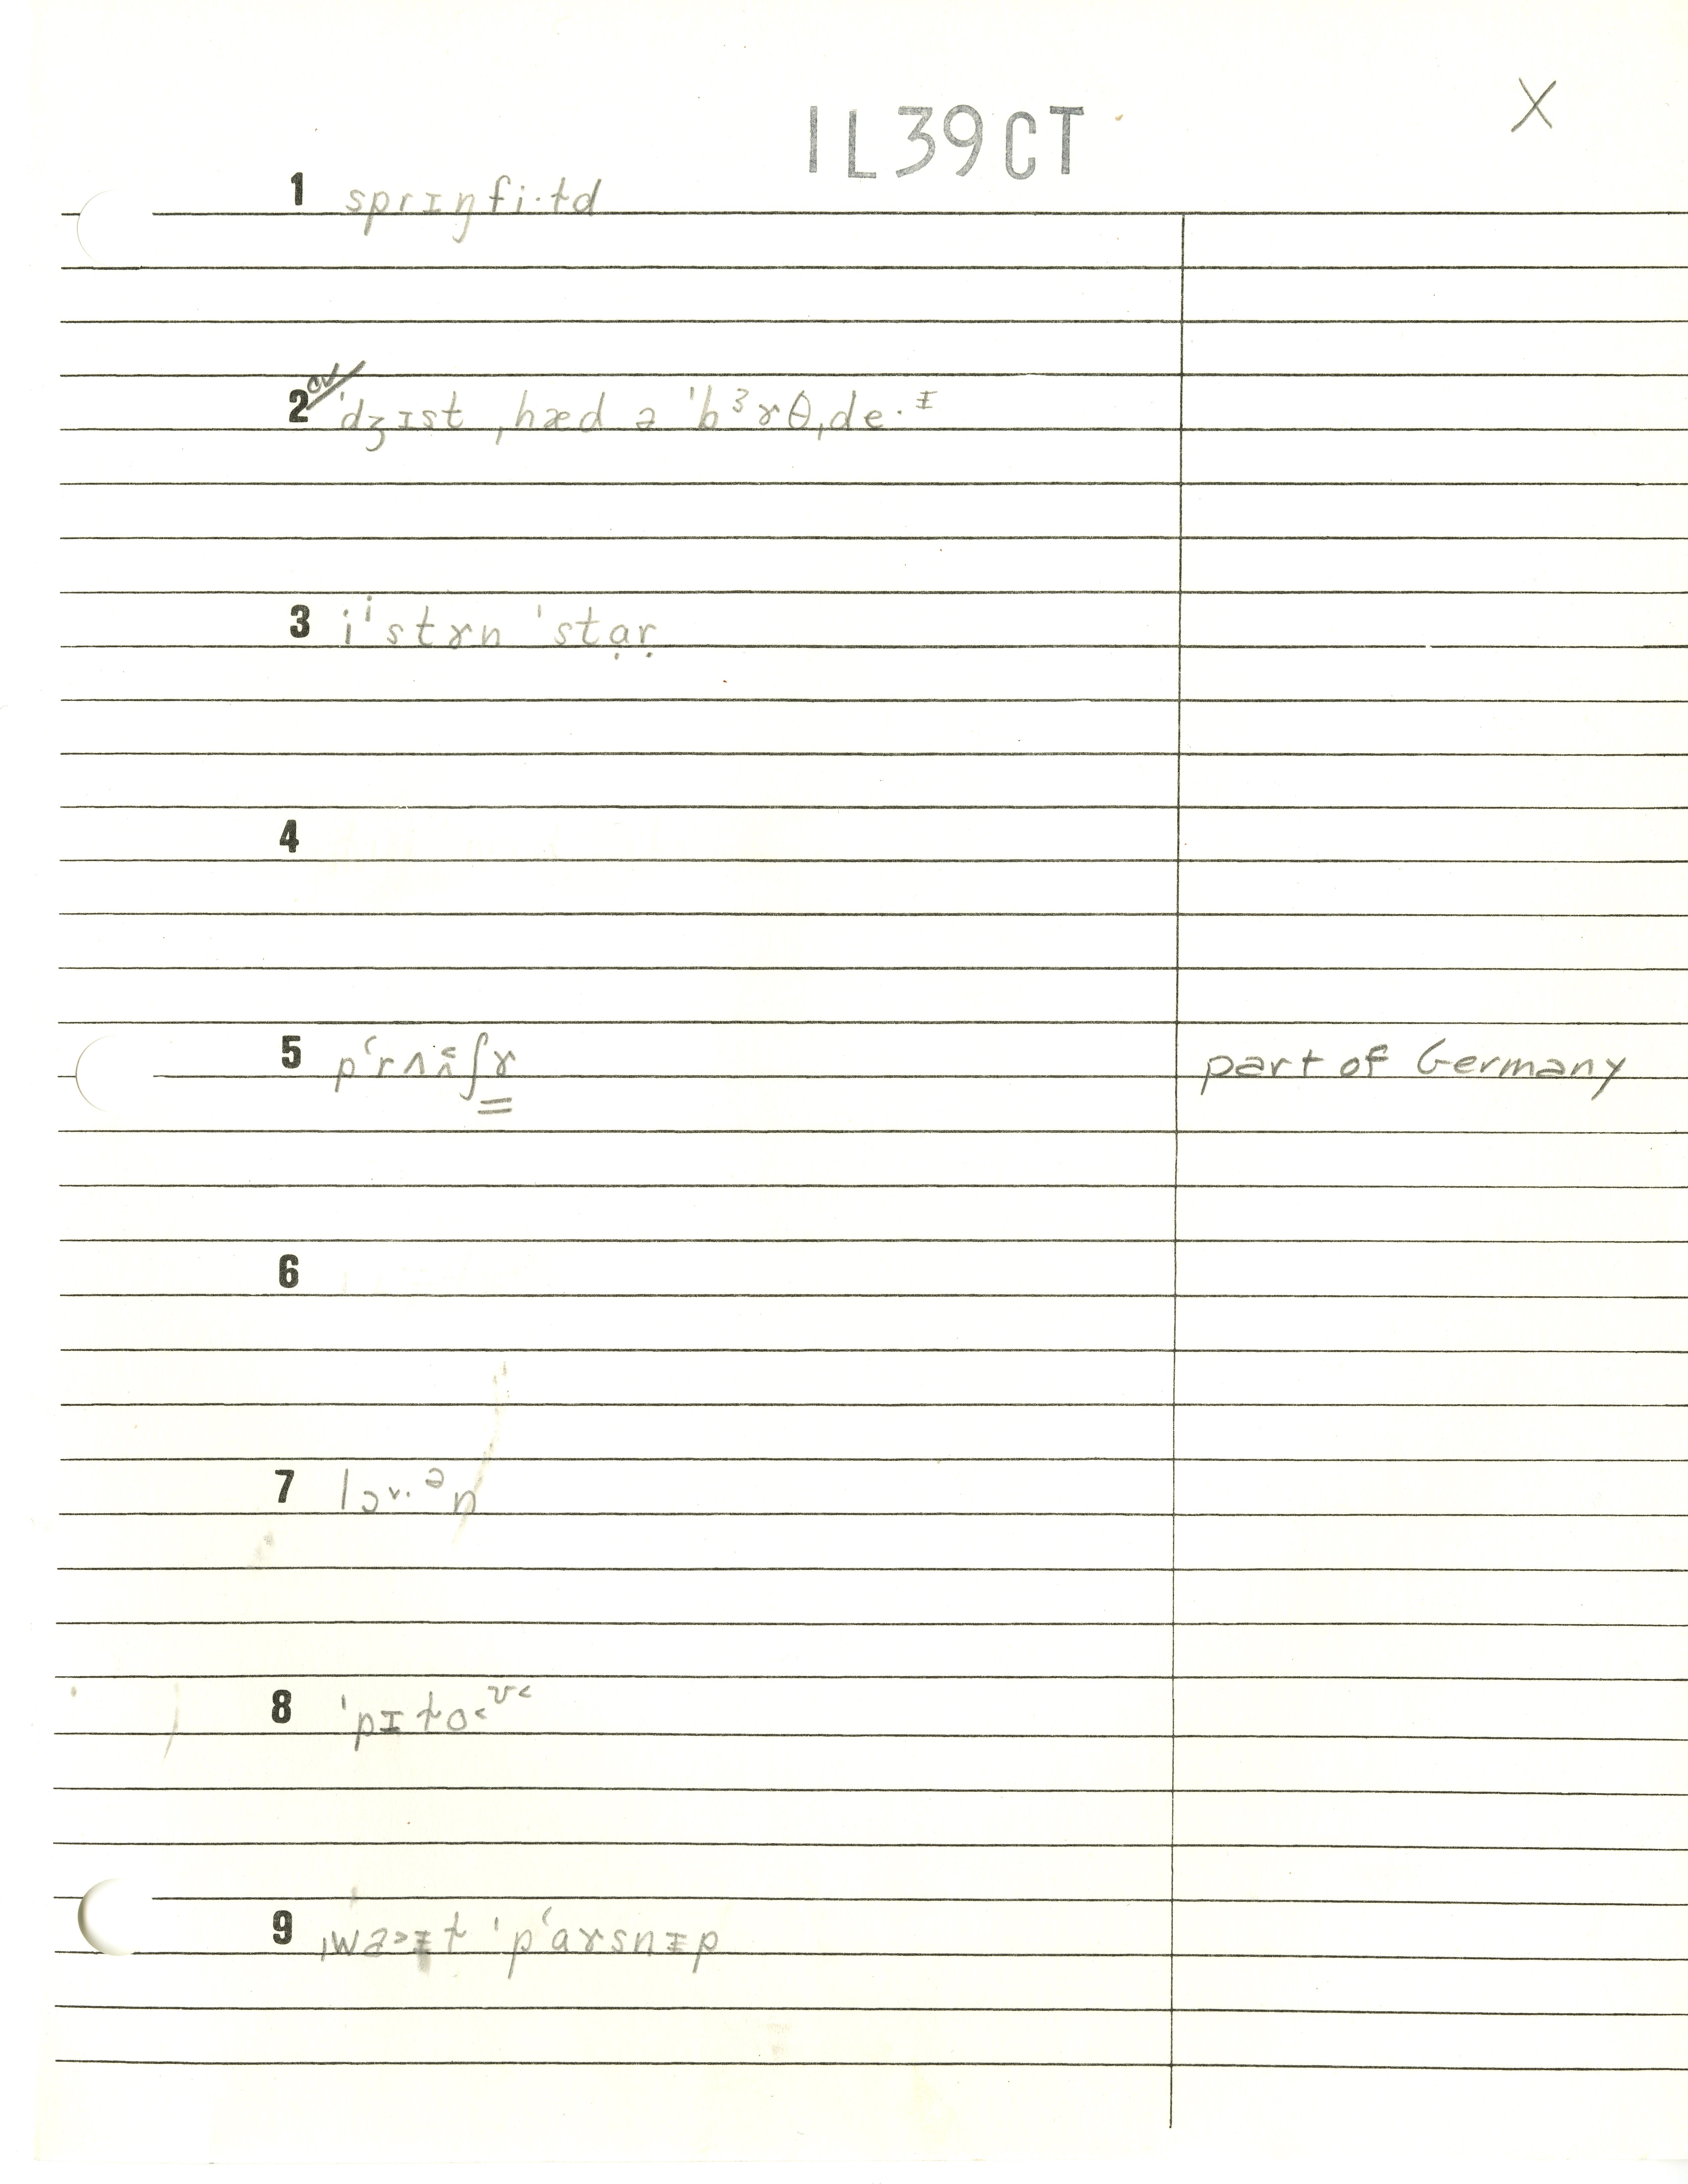 X
IL39CT
1 sprɪŋfi·ɫd
2 cv ˈdʒɪst ˌhæd ə ˈbɜɤθˌde·ᵻ
3 iⁱˈstɤn ˈstɑ̣ṛ
4
5 pʻrʌʌ̃˂ʃɤ
part of Germany
6
7 lɔ˅·ᵊn
8 ˈpɪɫo˂ᶹ˂
9 ˌwa˃ᵻɫ ˈpʻɑɤsnᵻp